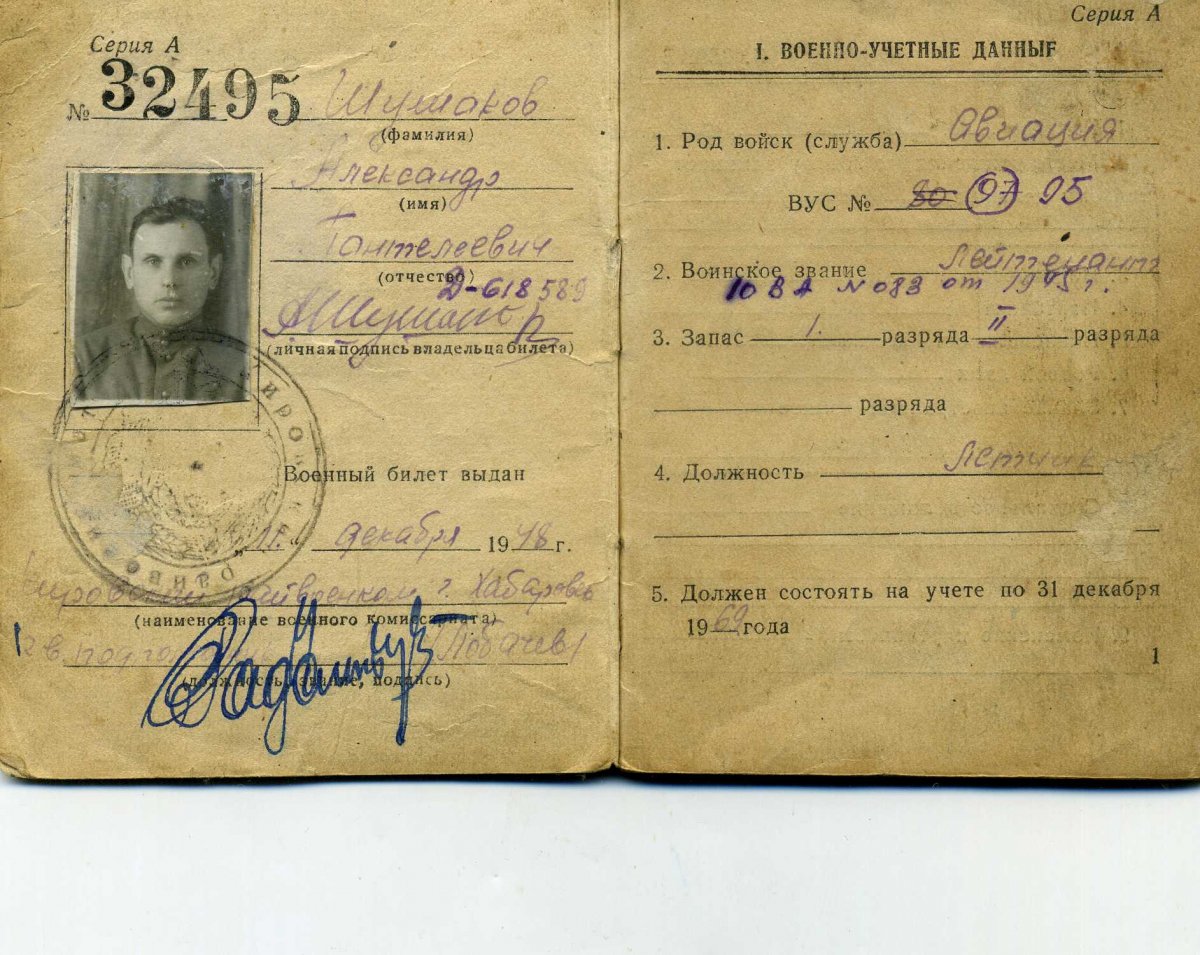 Серия А
№ 32495
Шушаков
(фамилия)
Александр
(имя)
Пантелеевич
(отчество)
Д-618589
(личная подпись владельца билета)
Военный билет выдан
"11" декабря 1948 г.
Кировский райвоенком г. Хабаровск
(наименование военного комиссариата)
(должность, звание, подпись)
Серия А
I. ВОЕННО-УЧЕТНЫЕ ДАННЫЕ
1. Род войск (служба) Авиация
ВУС № 80 97 95
2. Воинское звание Лейтенант
10 ВА № 088 от 1945 г.
3. Запас I. разряда II разряда
разряда
4. Должность Летчик
5. Должен состоять на учете по 31 декабря
1969 года
1